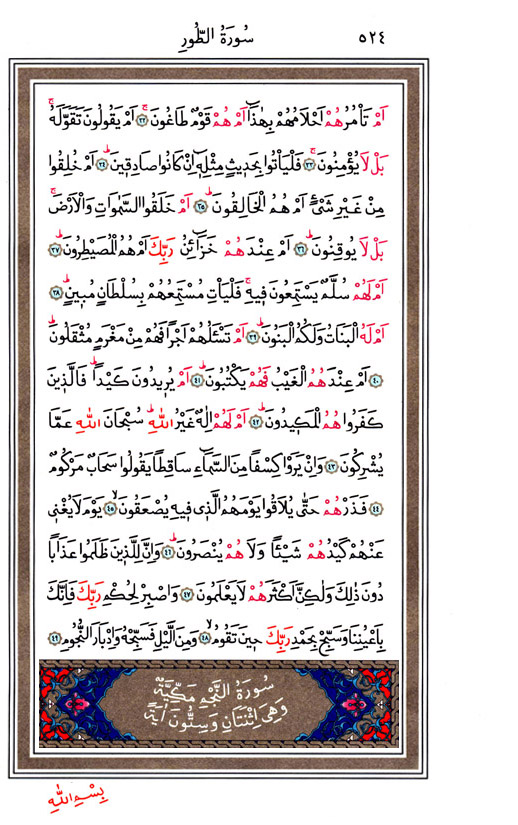 سُورَةُ الطُّورِ ٥٢٤
اَمْ تَأْمُرُهُمْ اَحْلَامُهُمْ بِهٰذَٓا اَمْ هُمْ قَوْمٌ طَاغُونَۚ ﴿٣٢﴾ اَمْ يَقُولُونَ تَقَوَّلَهُۚ
بَلْ لَا يُؤْمِنُونَۚ ﴿٣٣﴾ فَلْيَأْتُوا بِحَدِيثٍ مِثْلِهِٓ اِنْ كَانُوا صَادِقِينَۜ ﴿٣٤﴾ اَمْ خُلِقُوا
مِنْ غَيْرِ شَيْءٍ اَمْ هُمُ الْخَالِقُونَۜ ﴿٣٥﴾ اَمْ خَلَقُوا السَّمٰوَاتِ وَالْاَرْضَۚ
بَلْ لَا يُوقِنُونَۜ ﴿٣٦﴾ اَمْ عِنْدَهُمْ خَزَٓائِنُ رَبِّكَ اَمْ هُمُ الْمُصَۣيْطِرُونَۜ ﴿٣٧﴾
اَمْ لَهُمْ سُلَّمٌ يَسْتَمِعُونَ فِيهِۚ فَلْيَأْتِ مُسْتَمِعُهُمْ بِسُلْطَانٍ مُبِينٍۜ ﴿٣٨﴾
اَمْ لَهُ الْبَنَاتُ وَلَكُمُ الْبَنُونَۜ ﴿٣٩﴾ اَمْ تَسْـَٔلُهُمْ اَجْرًا فَهُمْ مِنْ مَغْرَمٍ مُثْقَلُونَۜ
﴿٤٠﴾ اَمْ عِنْدَهُمُ الْغَيْبُ فَهُمْ يَكْتُبُونَۜ ﴿٤١﴾ اَمْ يُرِيدُونَ كَيْدًاۜ فَالَّذِينَ
كَفَرُوا هُمُ الْمَكِيدُونَۜ ﴿٤٢﴾ اَمْ لَهُمْ اِلٰهٌ غَيْرُ اللّٰهِۜ سُبْحَانَ اللّٰهِ عَمَّا
يُشْرِكُونَ ﴿٤٣﴾ وَاِنْ يَرَوْا كِسْفًا مِنَ السَّمَٓاءِ سَاقِطًا يَقُولُوا سَحَابٌ مَرْكُومٌ
﴿٤٤﴾ فَذَرْهُمْ حَتّٰى يُلَاقُوا يَوْمَهُمُ الَّذِي فِيهِ يُصْعَقُونَۙ ﴿٤٥﴾ يَوْمَ لَا يُغْنِي
عَنْهُمْ كَيْدُهُمْ شَيْـًٔا وَلَا هُمْ يُنْصَرُونَۜ ﴿٤٦﴾ وَاِنَّ لِلَّذِينَ ظَلَمُوا عَذَابًا
دُونَ ذٰلِكَ وَلٰكِنَّ اَكْثَرَهُمْ لَا يَعْلَمُونَ ﴿٤٧﴾ وَاصْبِرْ لِحُكْمِ رَبِّكَ فَاِنَّكَ
بِاَعْيُنِنَا وَسَبِّحْ بِحَمْدِ رَبِّكَ حِينَ تَقُومُۙ ﴿٤٨﴾ وَمِنَ الَّيْلِ فَسَبِّحْهُ وَاِدْبَارَ النُّجُومِ ﴿٤٩﴾
سُورَةُ النَّجْمِ مَكِّيَّةٌ
وَهِيَ اِثْنَتَانِ وَسِتُّونَ اٰيَةً
بِسْمِ اللّٰهِ